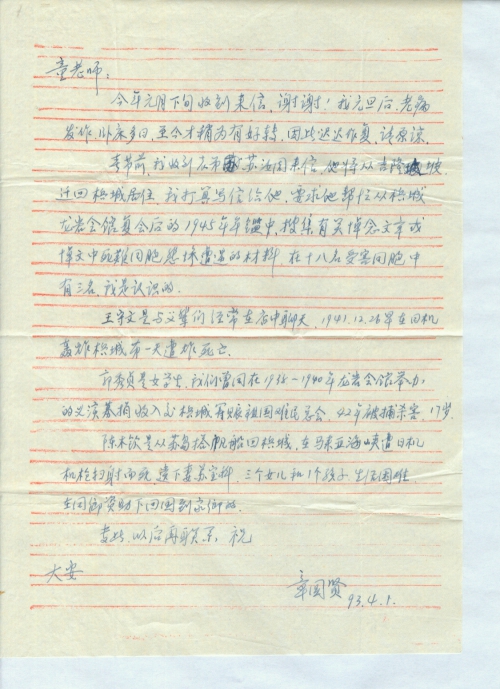 童老师：
今年元月下旬收到来信，谢谢！我元旦后，老病
发作，卧床多日，至今才稍为有好转，因此迟迟作复，请原谅。
春节前，我收到 苏 来信，他悟从吉隆坡
迁回槟城居住，我打算写信给他，要求他帮忙从槟城
龙岩会馆复会后的1945年年鉴中，搜集有关悼念文章或
悼文中死难同胞悲惨遭遇的材料，在十八名受害同胞中
有三名，我是认识的。
王守文是与父辈们经常在店中聊天，1941.12.26早在日机
轰炸槟城第一天遭炸死亡。
秀贞是女学生，我们曾同在1938—1940年龙岩会馆举办
的义演募捐收入 槟城 赈祖国难民总会，42年被捕杀害，17岁。
陈木钦是从苏岛搭帆船回槟城，在马来亚海峡遭日机
机枪扫射而死，遗下妻苏宝 ，三个女儿和1个孩子，生活困难
在同乡资助下回国到家乡的。
专此，以后再联系，祝
大安
章国贤
93.4.1.